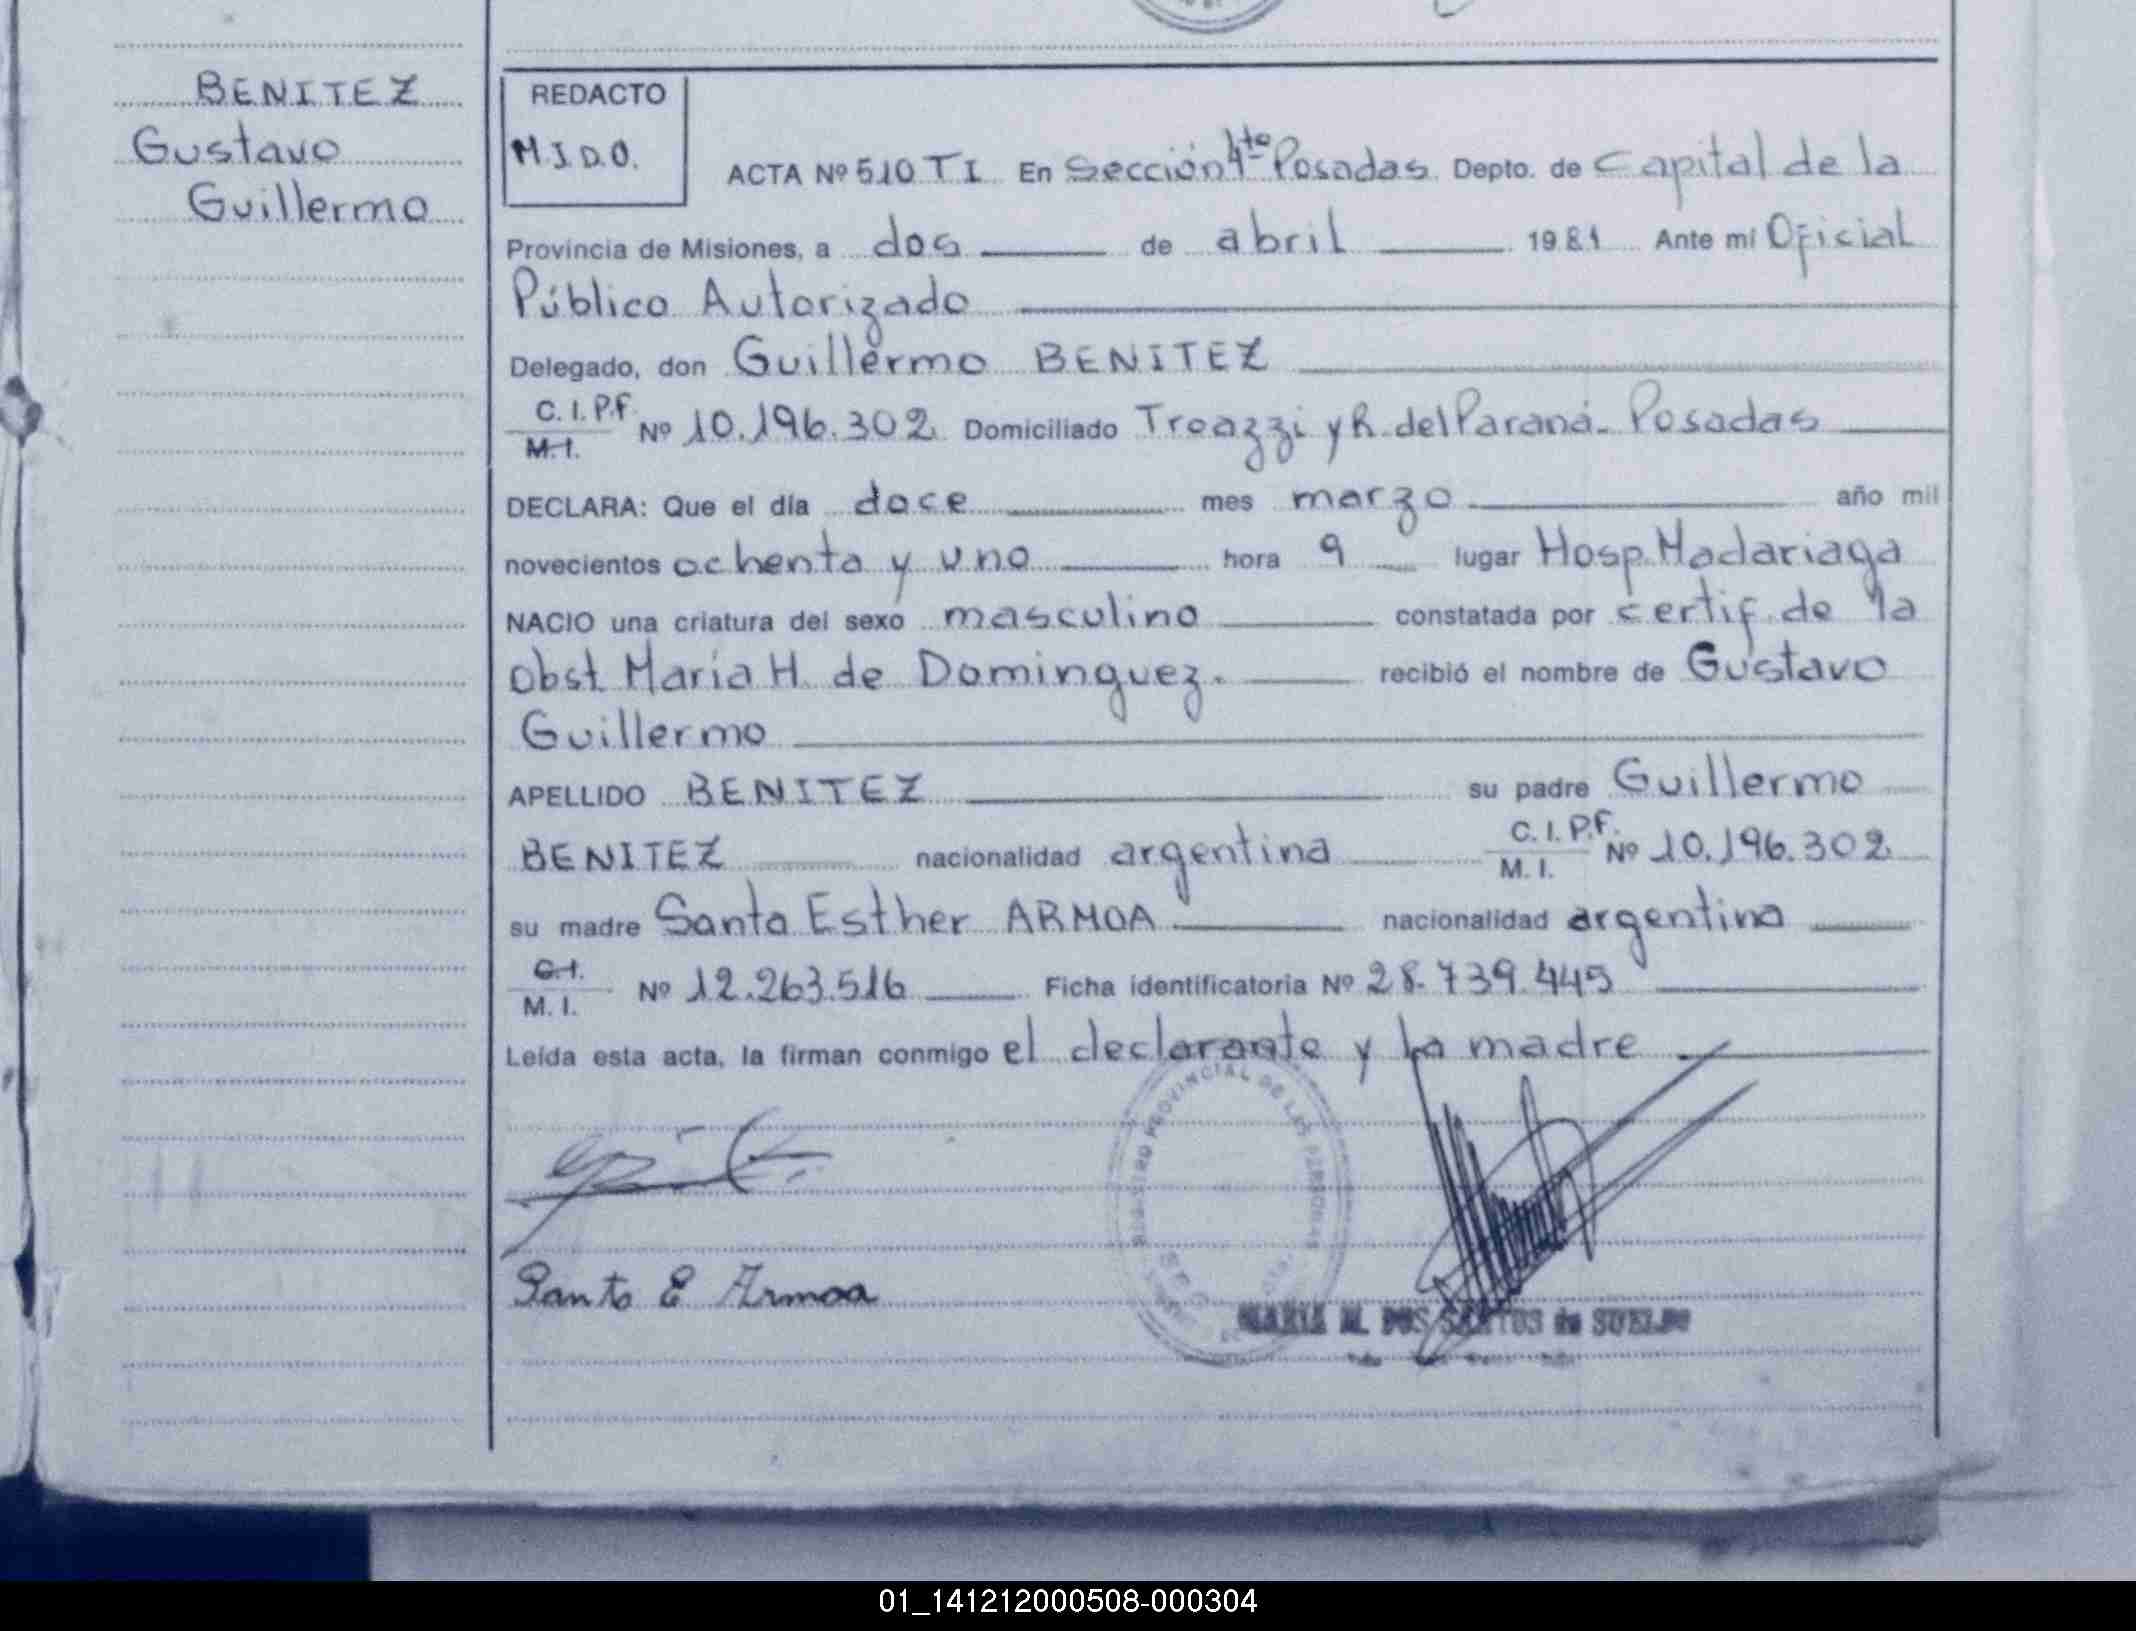 BENITEZ
Gustavo
Guillermo
REDACTO
M.J.D.O.
ACTA Nº 510 TI En Sección 4ta Posadas Depto. de Capital de la
Provincia de Misiones, a dos de abril 1981 Ante mí Oficial
Público Autorizado
Delegado, don Guillermo BENITEZ
C.I.P.F. M.I. Nº 10.196.302 Domiciliado Troazzi y R. del Paraná - Posadas
DECLARA: Que el día doce mes marzo año mil
novecientos ochenta y uno hora 9 lugar Hosp. Madariaga
NACIO una criatura del sexo masculino constatada por certif. de la
obst. María H. de Dominguez. recibió el nombre de Gustavo
Guillermo
APELLIDO BENITEZ su padre Guillermo
BENITEZ nacionalidad argentina C.I.P.F. M.I. Nº 10.196.302
su madre Santa Esther ARMOA nacionalidad argentina
C.I. M.I. Nº 12.263.516 Ficha identificatoria Nº 28.739.445
Leída esta acta, la firman conmigo el declarante y la madre
REGISTRO PROVINCIAL DE LAS PERSONAS
Santa E Armoa
MARIA M. DOS SANTOS de SUELDO
01_141212000508-000304